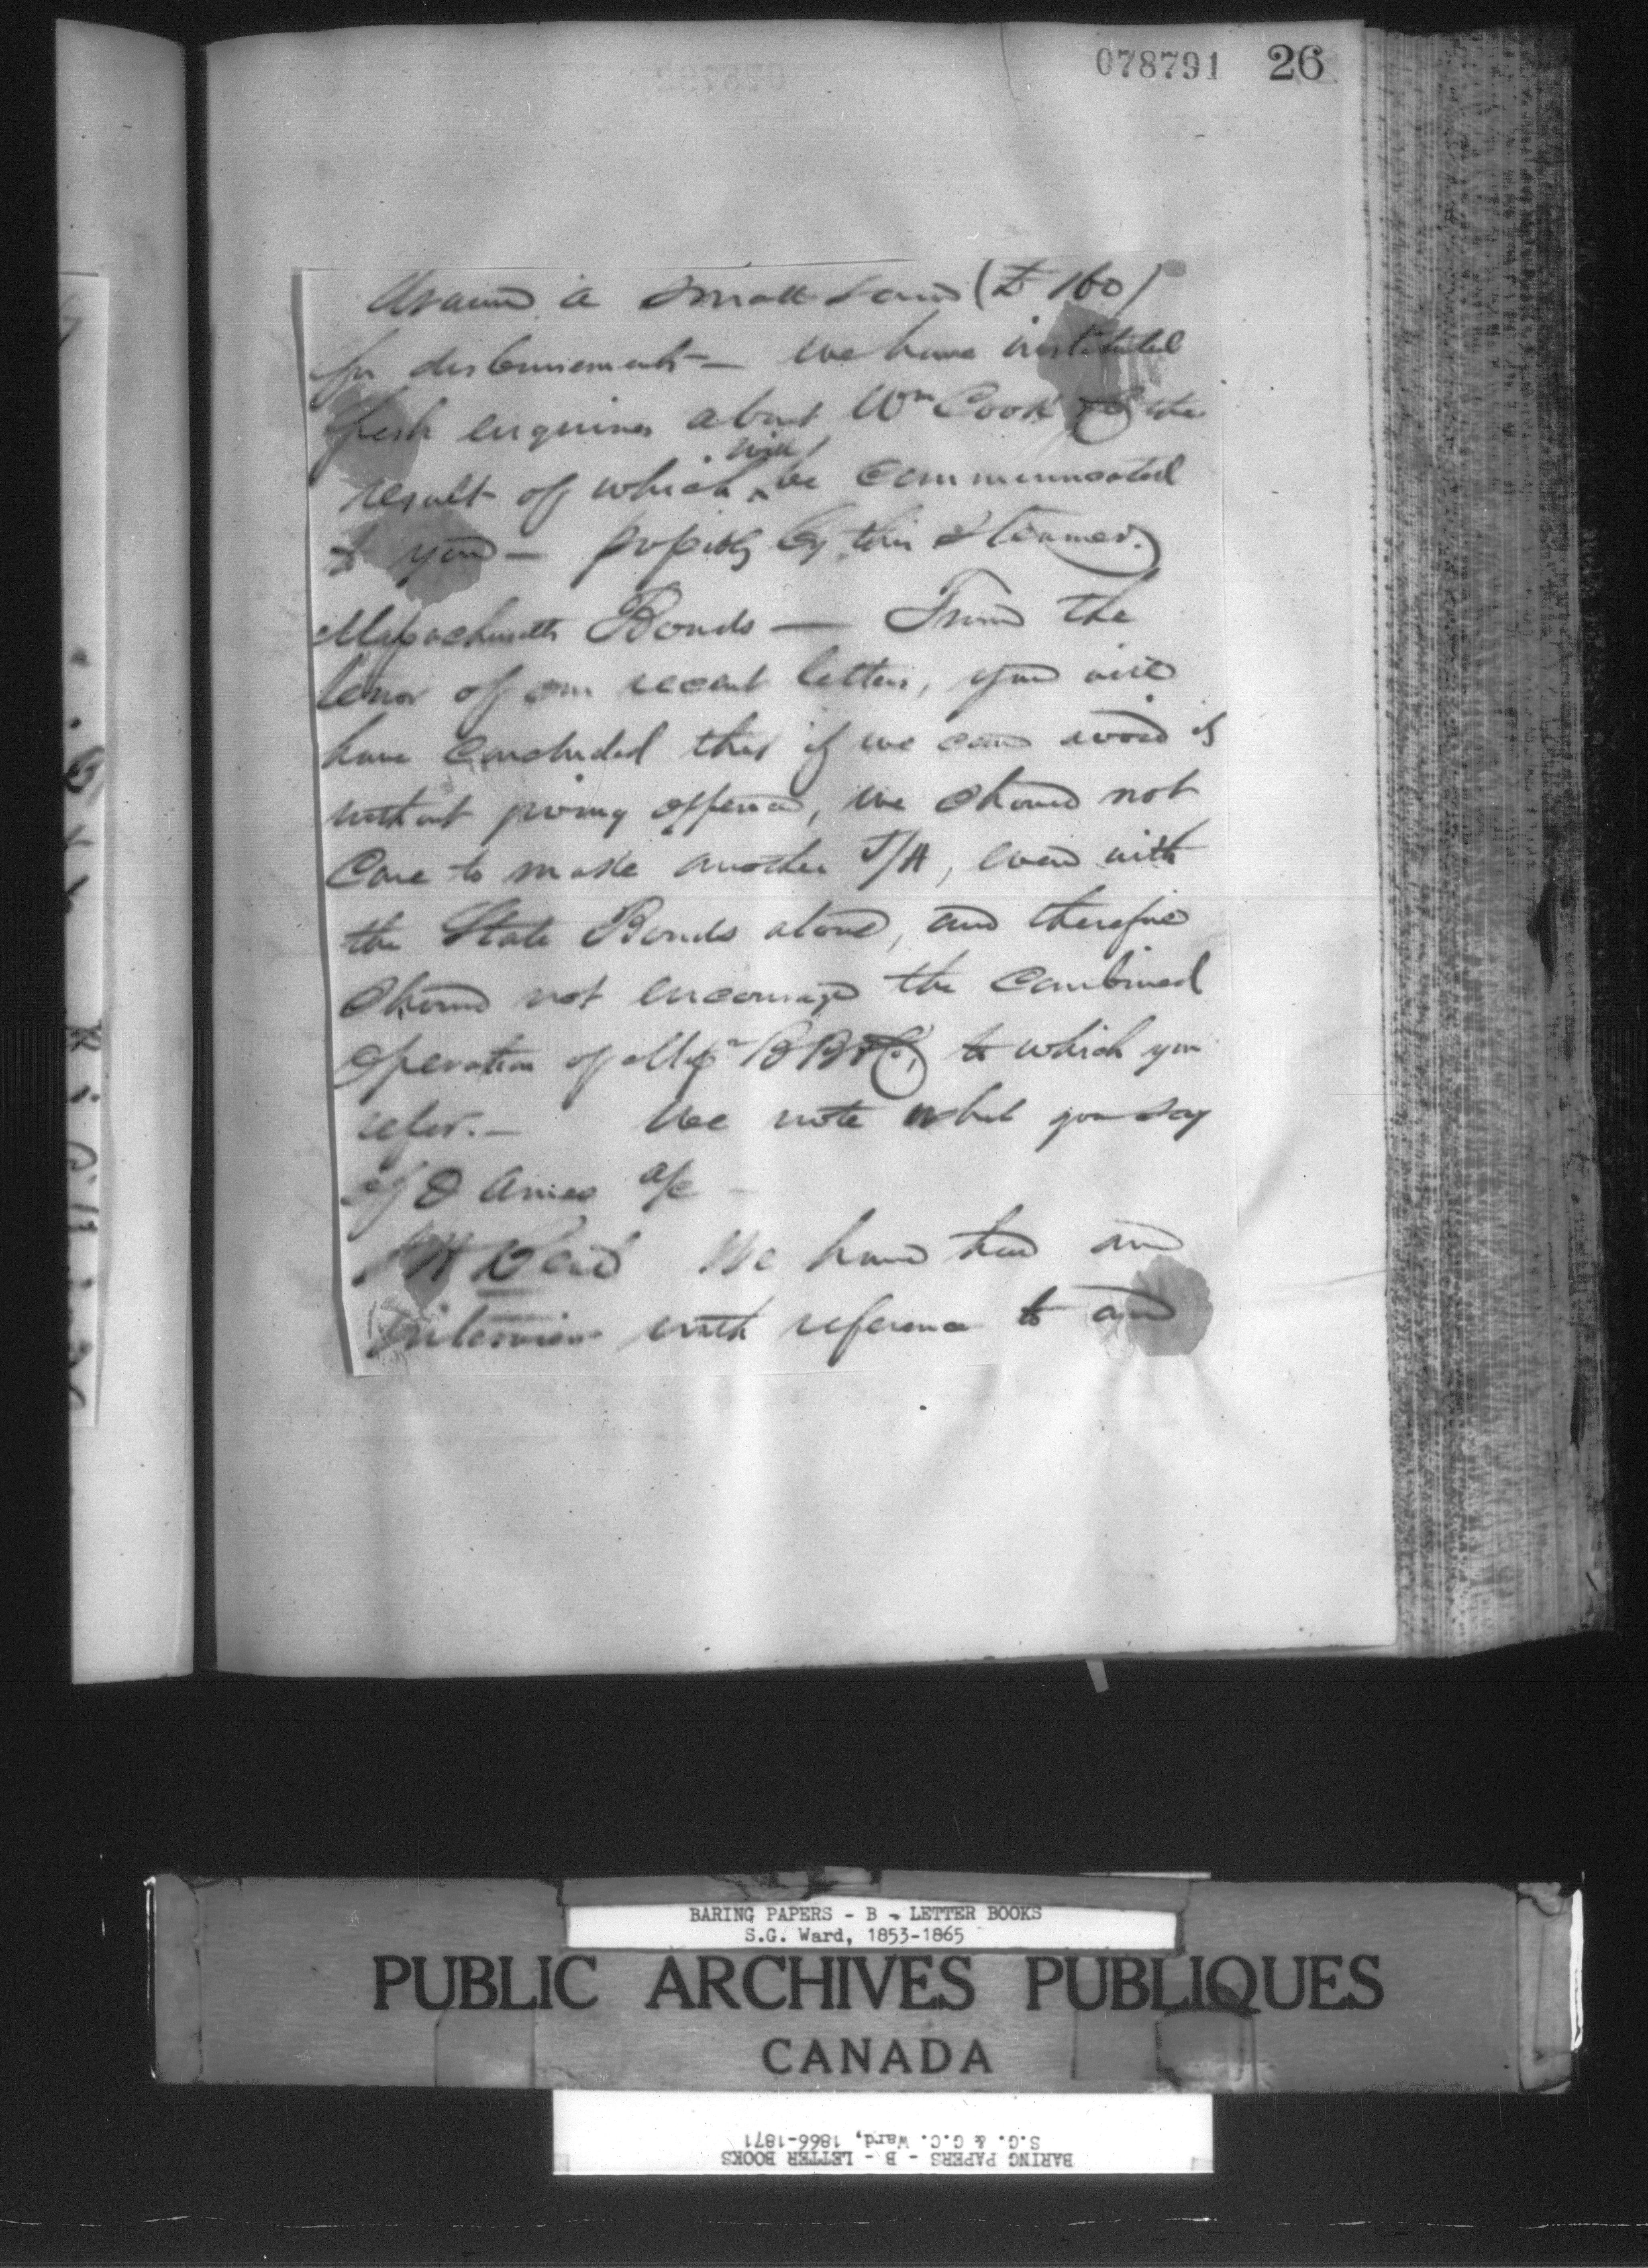 078791 26
drawn a small sum (£ 160)
for disbursements — We have instituted
fresh enquiries about Wm Cook & Co the
result of which will be communicated
to you — possibly by this Steamer.
Massachusetts Bonds — From the
tenor of our recent letters, you will
have concluded that if we can avoid it
without giving offence, we should not
care to make another J/A, even with
the State Bonds alone, and therefore
should not encourage the combined
operation of Messrs BB & Co, to which you
refer. — We note what you say
of O Ames a/c —
We have had an
interview with reference to and
BARING PAPERS - B - LETTER BOOKS
S.G. Ward, 1853-1865
PUBLIC ARCHIVES PUBLIQUES
CANADA
BARING PAPERS - B - LETTER BOOKS
S.G. & G.C. Ward, 1866-1871